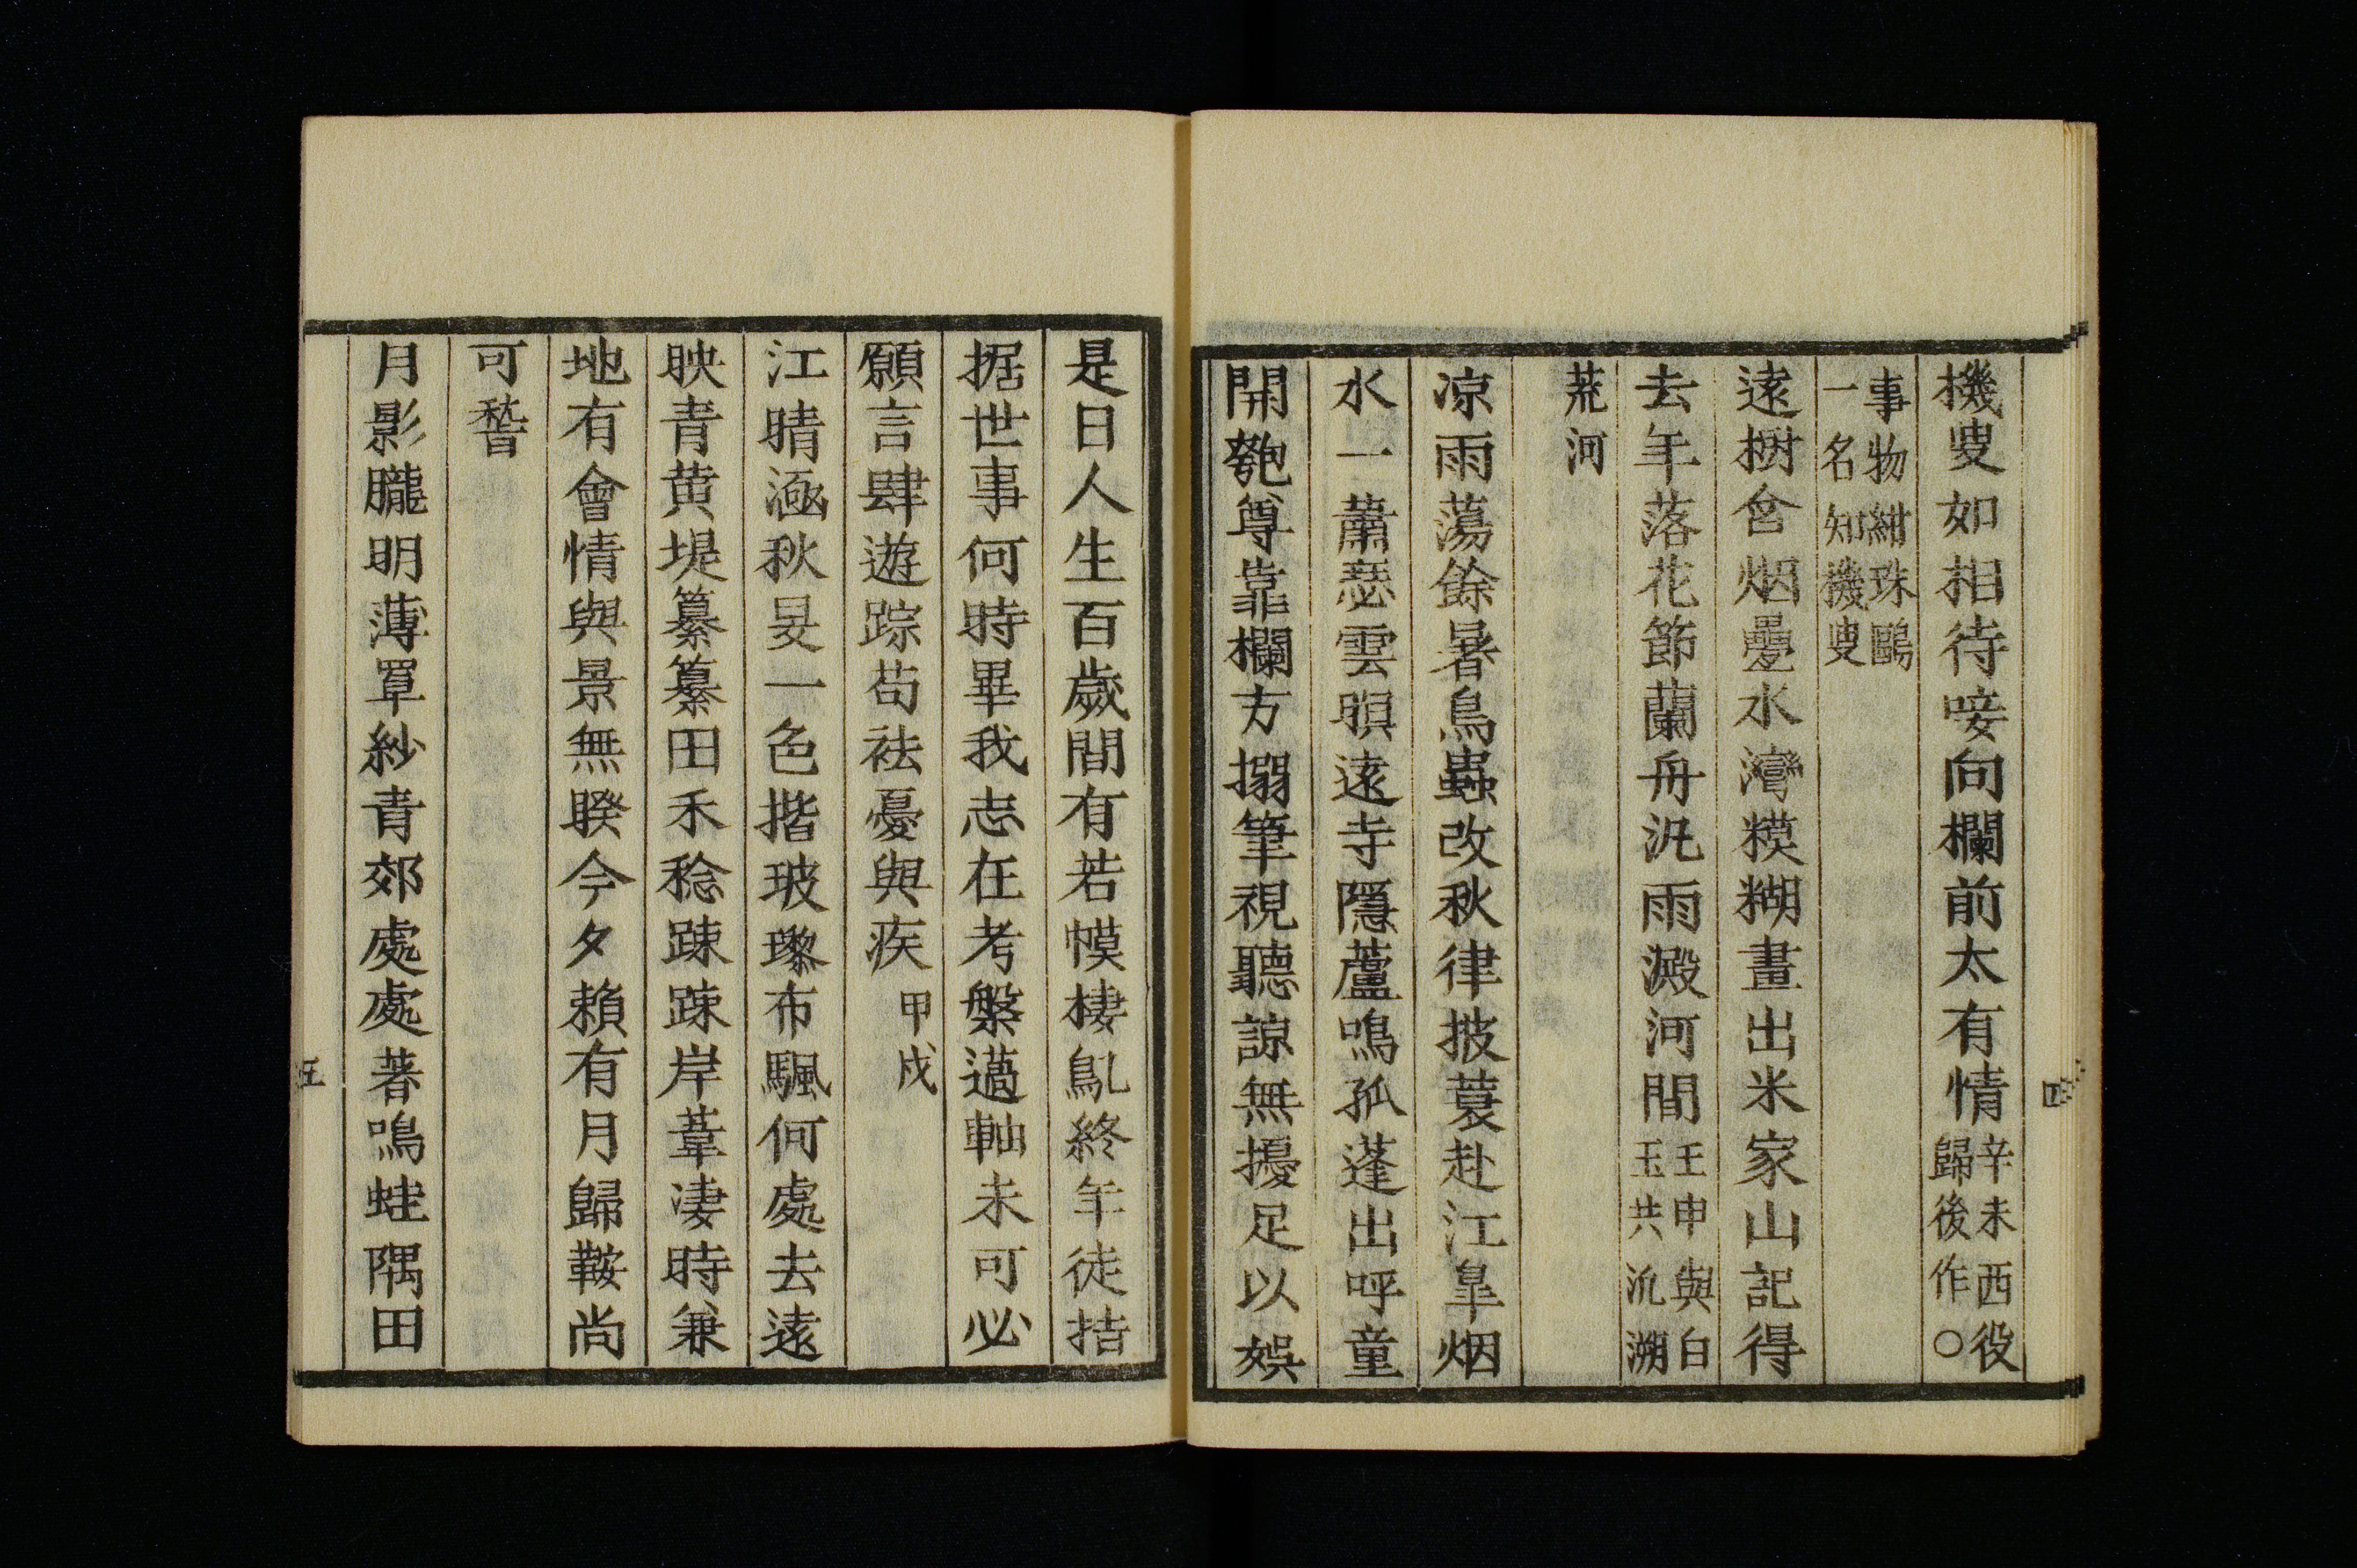 機叟如相待唼向欄前太有情辛未西役歸後作○
事物紺珠鷗一名知機叟
遠樹含烟疊水灣糢糊畫出米家山記得
去年落花節蘭舟汎雨澱河間壬申與白玉共泝溯
菰河
凉雨蕩餘暑鳥蟲改秋律披蓑赴江皐烟
水一蕭瑟雲暝遠寺隱蘆鳴孤蓬出呼童
開匏尊靠欄方搦筆視聽諒無擾足以娛
是日人生百歲間有若幙棲鳦終年徒拮
据世事何時畢我志在考槃薖軸未可必
願言肆遊踪苟袪憂與疾甲戍
江晴涵秋旻一色揩玻瓈布颿何處去遠
映青黄堤纂纂田禾稔踈踈岸葦凄時兼
地有會情與景無睽今夕賴有月歸鞍尚
可嵇
月影朧明薄罩紗青郊處處著鳴蛙隅田
四
五